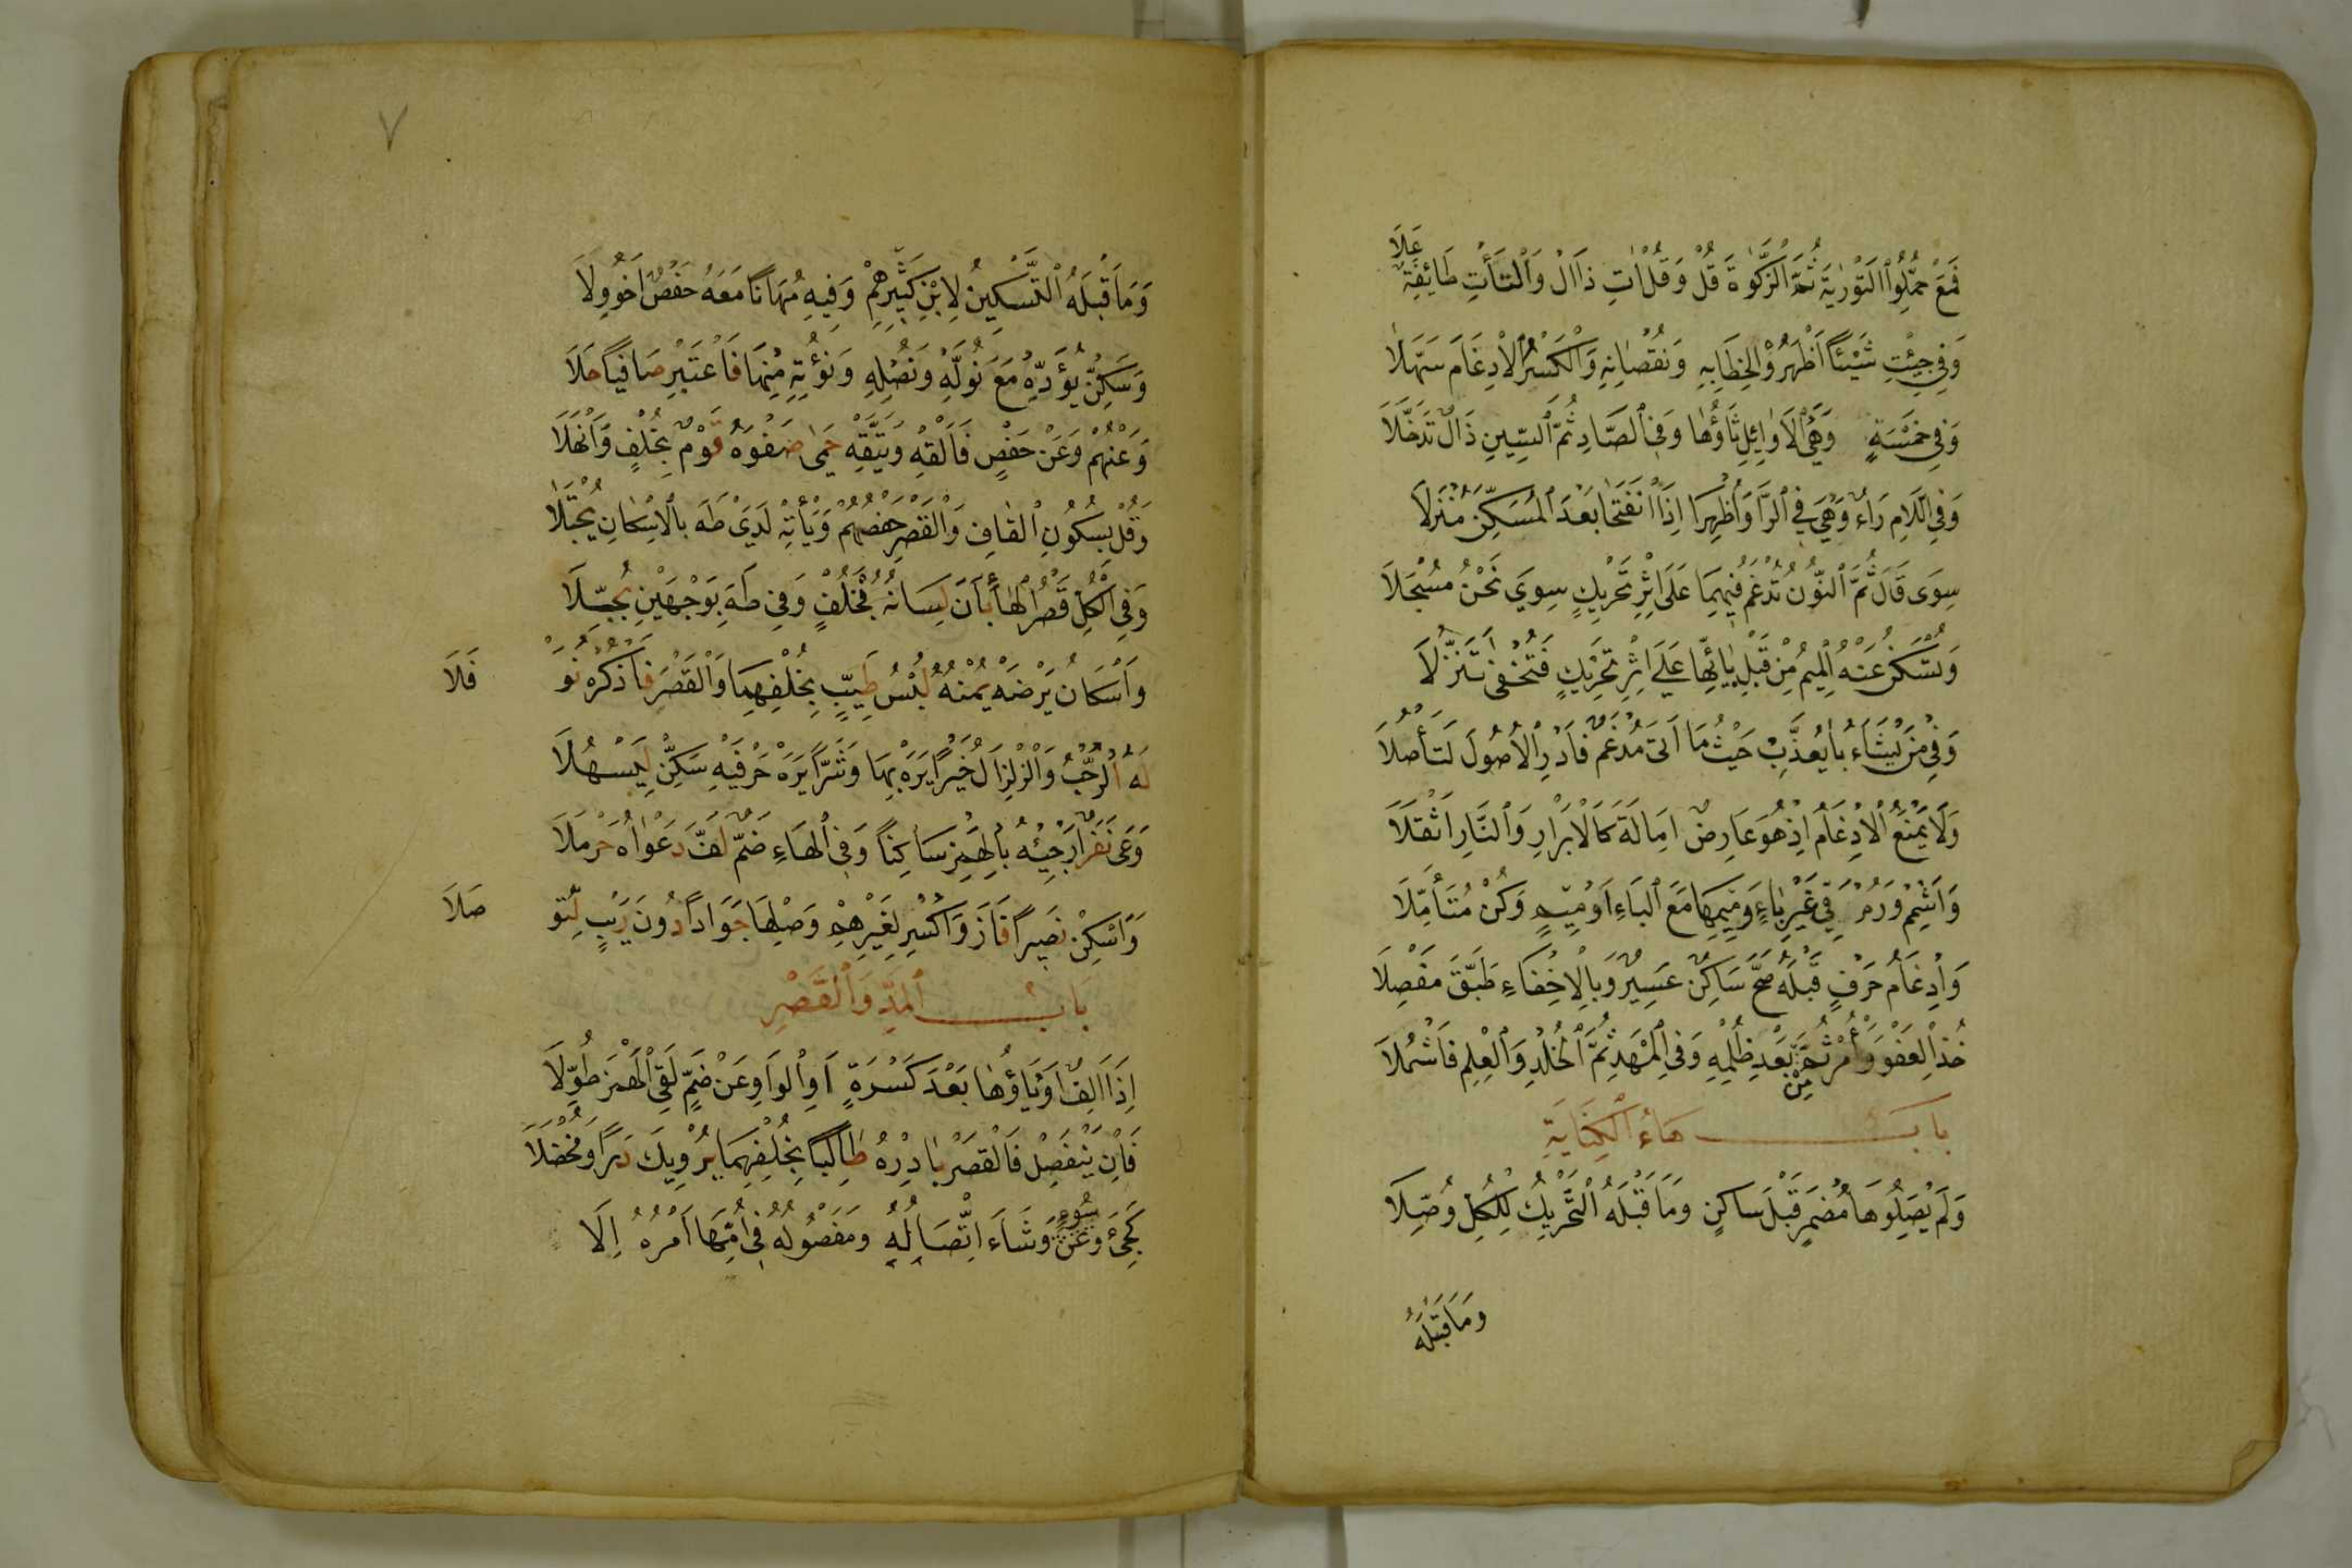 فَمَعْ حُمِّلُوا التَّوْرٰيةَ ثُمَّ الزَّكٰوةَ قُلْ وَقُلْ اٰتِ ذَا الْ وَالْتَأْتِ طَائِفَةٌ عَلَا
وَفِي جِئْتِ شَيْئًا أَظْهَرُوْ لِخِطَابِهِ وَنُقْصَانِهِ وَالْكَسْرُ الْاِدْغَامَ سَهَّلَا
وَفِي خَمْسَةٍ وَهْيَ الْاَوَائِلِ ثَاؤُهَا وَفِي الصَّادِ ثُمَّ السِّينِ ذَالٌ تَدَخَّلَا
وَفِي اللَّامِ رَاءٌ وَهْيَ فِي الرَّا وَاُظْهِرَا اِذَا انْفَتَحَا بَعْدَ الْمُسَكَّنِ مُنْزَلَا
سِوَى قَالَ ثُمَّ النُّونُ تُدْغَمُ فِيهِمَا عَلَى اِثْرِ تَحْرِيكٍ سِوَى نَحْنُ مُسْجَلَا
وَتُسْكَنُ عَنْهُ الْمِيمُ مِنْ قَبْلِ بَائِهَا عَلَى اِثْرِ تَحْرِيكٍ فَتَخْفَى تَنَزُّلَا
وَفِي مَنْ يَشَاءُ بَا يُعَذِّبُ حَيْثُ مَا اَتَى مُدْغَمٌ فَادْرِ الْاُصُولَ لِتَأْصُلَا
وَلَا يَمْنَعُ الْاِدْغَامُ اِذْ هُوَ عَارِضٌ اِمَالَةَ كَالْاَبْرَارِ وَالنَّارِ اَثْقَلَا
وَاَشْمِمْ وَرُمْ فِي غَيْرِ بَاءٍ وَمِيمِهَا مَعَ الْبَاءِ اَوْ مِيمٍ وَكُنْ مُتَأَمِّلَا
وَاِدْغَامُ حَرْفٍ قَبْلَهُ صَحَّ سَاكِنٌ عَسِيرٌ وَبِالْاِخْفَاءِ طَبَّقَ مَفْصِلَا
خُذِ الْعَفْوَ وَأْمُرْ ثُمَّ مِنْ بَعْدِ ظُلْمِهِ وَفِي الْمَهْدِ ثُمَّ الْخُلْدِ وَالْعِلْمِ فَاشْمُلَا
بَابُ هَاءِ الْكِنَايَةِ
وَلَمْ يَصِلُوا هَا مُضْمَرٍ قَبْلَ سَاكِنٍ وَمَا قَبْلَهُ التَّحْرِيكُ لِلْكُلِّ وُصِّلَا
وَمَا قَبْلَهُ
٧
وَمَا قَبْلَهُ التَّسْكِينُ لِابْنِ كَثِيرِهِمْ وَفِيهِ مُهَانًا مَعَهُ حَفْصٌ اَخُو وِلَا
وَسَكِّنْ يُؤَدِّهْ مَعْ نُوَلِّهْ وَنُصْلِهِ وَنُؤْتِهِ مِنْهَا فَاعْتَبِرْ صَافِيًا حَلَا
وَعَنْهُمْ وَعَنْ حَفْصٍ فَاَلْقِهْ وَيَتَّقِهْ حَمَى صَفْوَهُ قَوْمٌ بِخُلْفٍ وَاَنْهَلَا
وَقُلْ بِسُكُونِ الْقَافِ وَالْقَصْرِ حَفْصُهُمْ وَيَأْتِهْ لَدَى طَهَ بِالْاِسْكَانِ يُجْتَلَا
وَفِي الْكُلِّ قَصْرُ الْهَا بَانَ لِسَانُهُ بِخُلْفٍ وَفِي طَهَ بِوَجْهَيْنِ بُجِّلَا
وَاِسْكَانُ يَرْضَهْ يُمْنُهُ لُبْسُ طَيِّبٍ بِخُلْفِهِمَا وَالْقَصْرَ فَاذْكُرْهُ نَوْ فَلَا
لَهُ الرُّحْبُ وَالزِّلْزَالُ خَيْرًا يَرَهْ بِهَا وَشَرًّا يَرَهْ حَرْفَيْهِ سَكِّنْ لِيَسْهُلَا
وَعَى نَفَرٌ اَرْجِئْهُ بِالْهَمْزِ سَاكِنًا وَفِي الْهَاءِ ضَمٌّ لَفَّ دَعْوَاهُ حَرْمَلَا
وَاَسْكِنْ نَصِيرًا فَازَ وَاكْسِرْ لِغَيْرِهِمْ وَصِلْهَا جَوَادًا دُونَ رَيْبٍ لِتُو صَلَا
بَابُ الْمَدِّ وَالْقَصْرِ
اِذَا اَلِفٌ اَوْ يَاؤُهَا بَعْدَ كَسْرَةٍ اَوِ الْوَاوِ عَنْ ضَمٍّ لَقِي الْهَمْزَ طُوِّلَا
فَاِنْ يَنْفَصِلْ فَالْقَصْرَ بَادِرْهُ طَالِبًا بِخُلْفِهِمَا يُرْوِيكَ دَرًّا وَمُخْضَلَا
كَجِئَ وَعَنْ سُوءٍ وَشَاءَ اتِّصَالُهُ وَمَفْصُولُهُ فِي اُمِّهَا اَمْرُهُ اِلَا